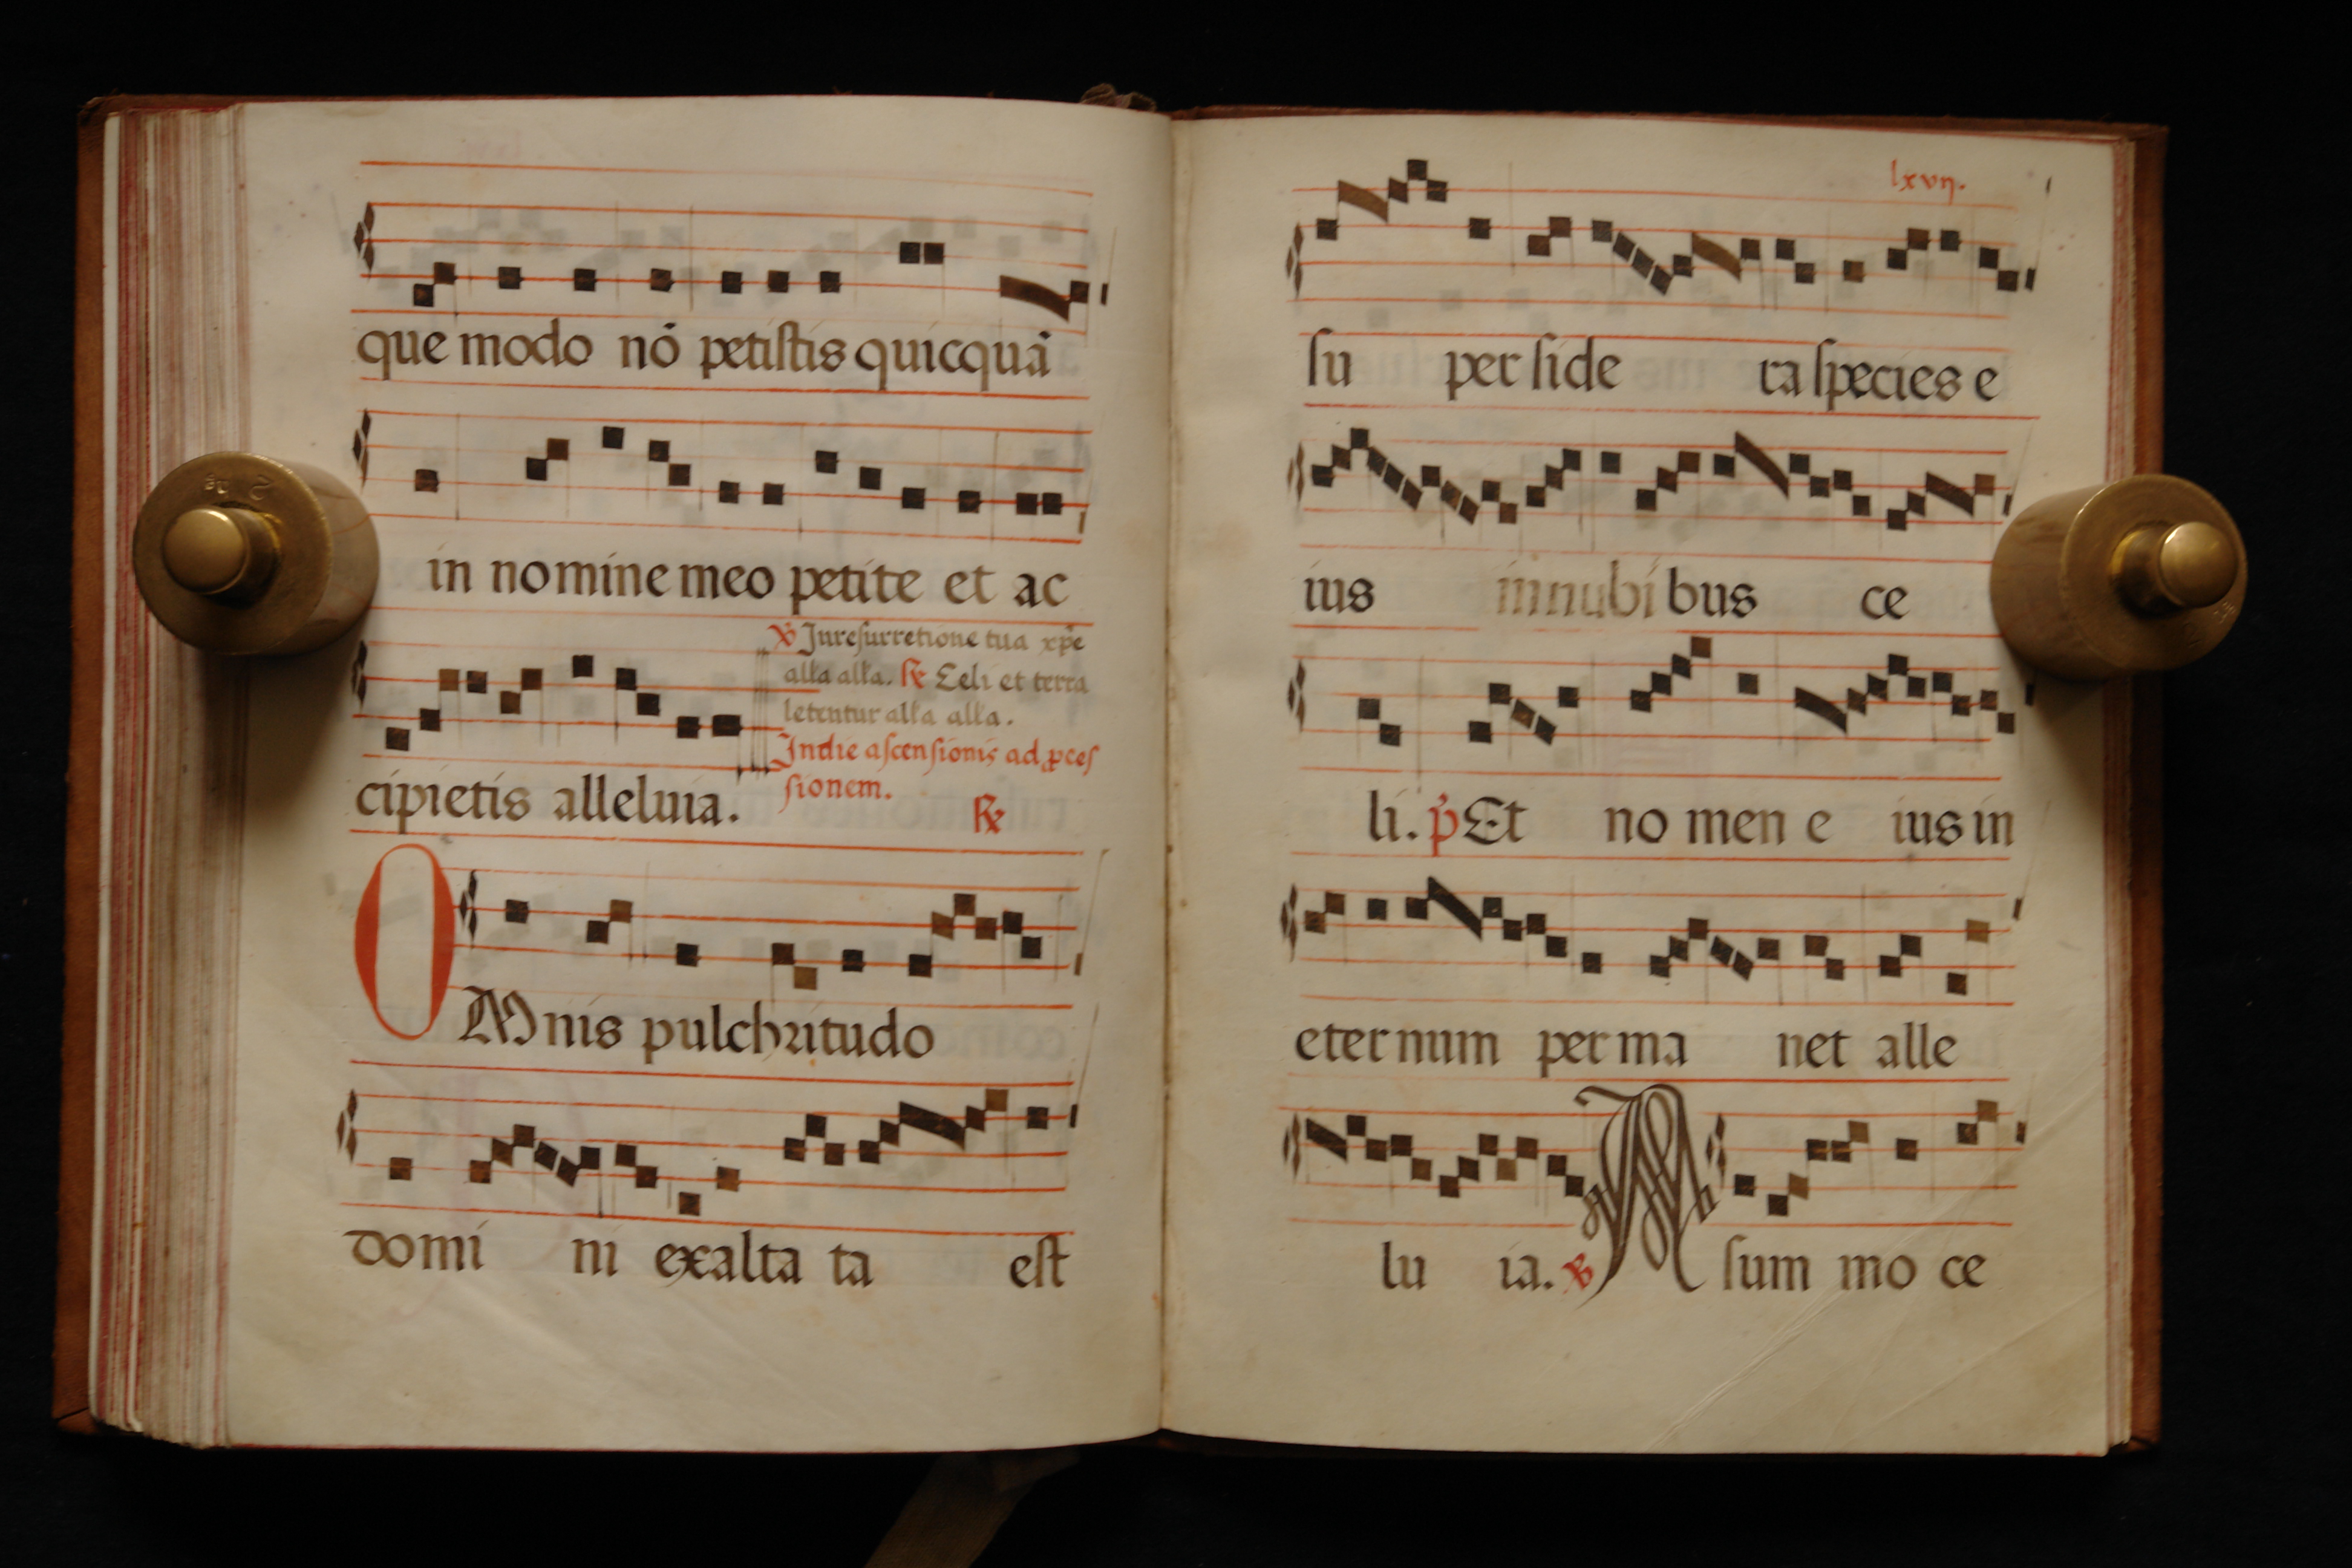 que modo nō petiſtis quicquā
in nomine meo petite et ac
℣ Jnreſurretione tua xp̄e
alła alła. ℟ Celi et terra
letentur alła alła.
Jndie aſcenſionis ad ꝓceſ
ſionem.
cipietis alleluia. ℟
OMnis pulchritudo
domi ni exalta ta eſt
lxvıȷ.
ſu per ſide ra ſpecies e
ius innubi bus ce
li. p̄ Et no men e ius in
eternum perma net alle
lu ia. ℣ A ſum mo ce